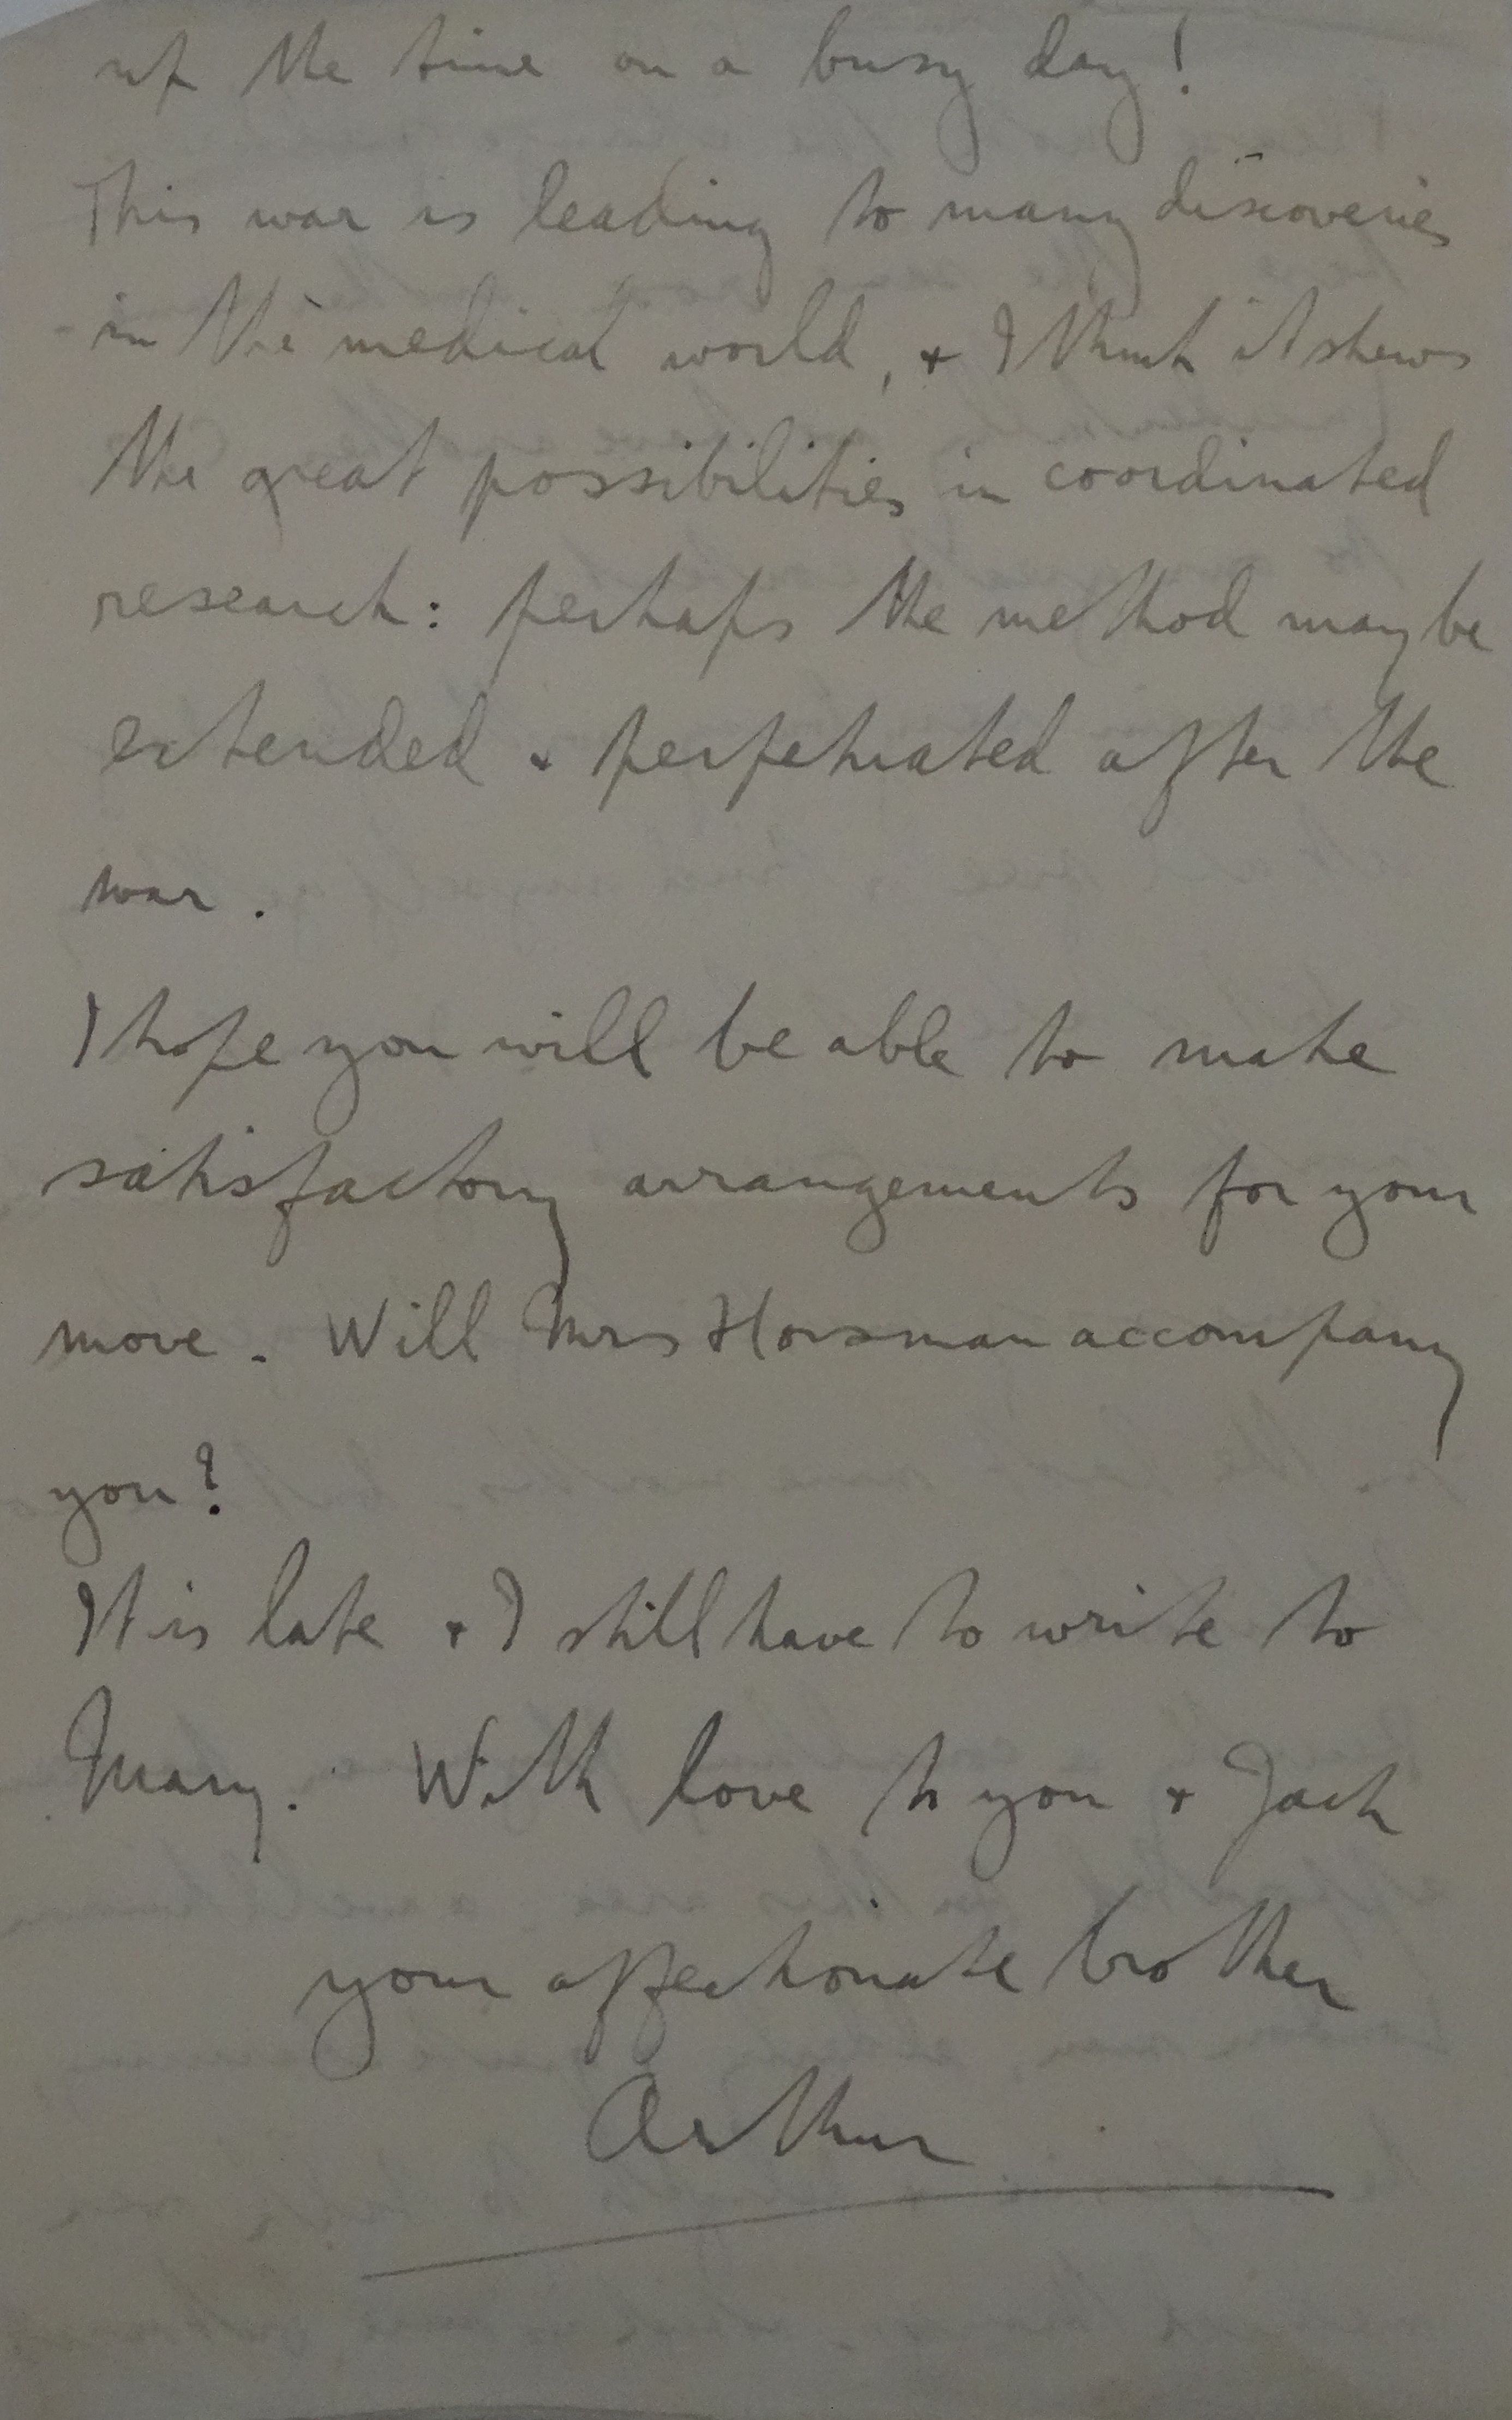 up the time on a busy day!
This war is leading to many discoveries
in the medical world, + I think it shews
the great possibilities in coordinated
research: perhaps the method may be
extended + perpetuated after the
war.
I hope you will be able to make
satisfactory arrangements for your
move. Will Mrs Horsman accompany
you?
It is late + I still have to write to
Mary. With love to you + Jack
your affectionate brother
Arthur